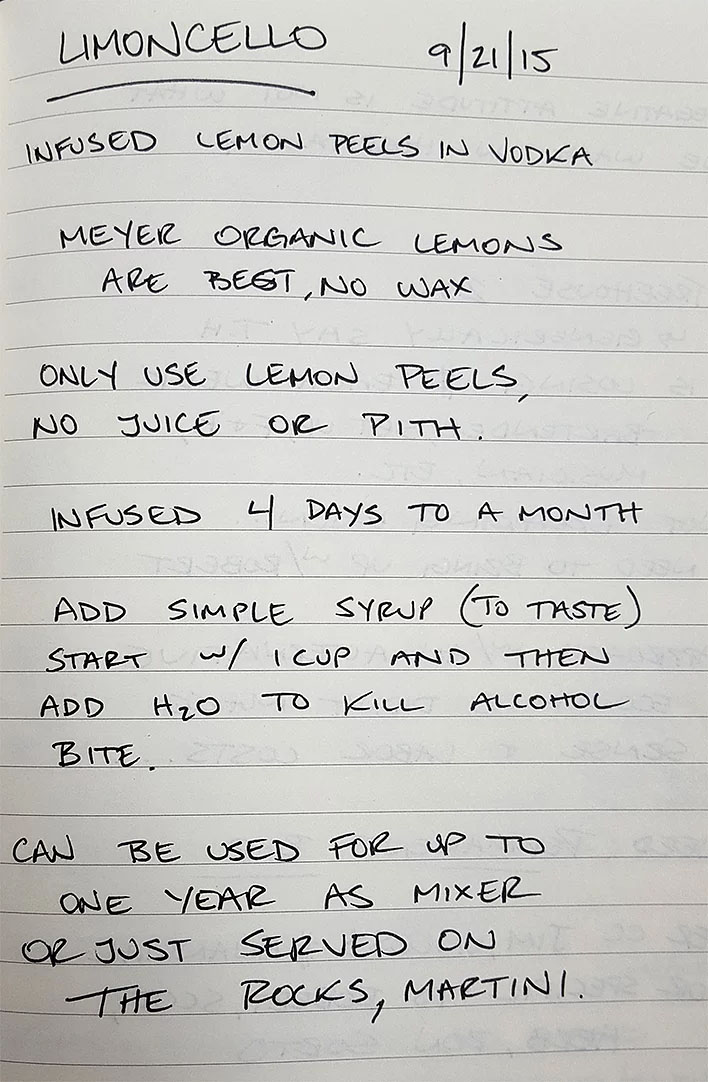 LIMONCELLO 9/21/15
INFUSED LEMON PEELS IN VODKA
MEYER ORGANIC LEMONS
ARE BEST, NO WAX
ONLY USE LEMON PEELS,
NO JUICE OR PITH.
INFUSED 4 DAYS TO A MONTH
ADD SIMPLE SYRUP (TO TASTE)
START W/ 1 CUP AND THEN
ADD H₂O TO KILL ALCOHOL
BITE.
CAN BE USED FOR UP TO
ONE YEAR AS MIXER
OR JUST SERVED ON
THE ROCKS, MARTINI.